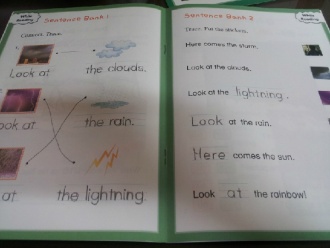 While Reading
Sentence Book 1
Look at the clouds.
ook at the rain.
at the lightning.
While Reading
Sentence Book 2
Here comes the storm.
Look at the clouds.
Look at the lightning.
Look at the rain.
Here comes the sun.
Look at the rainbow!